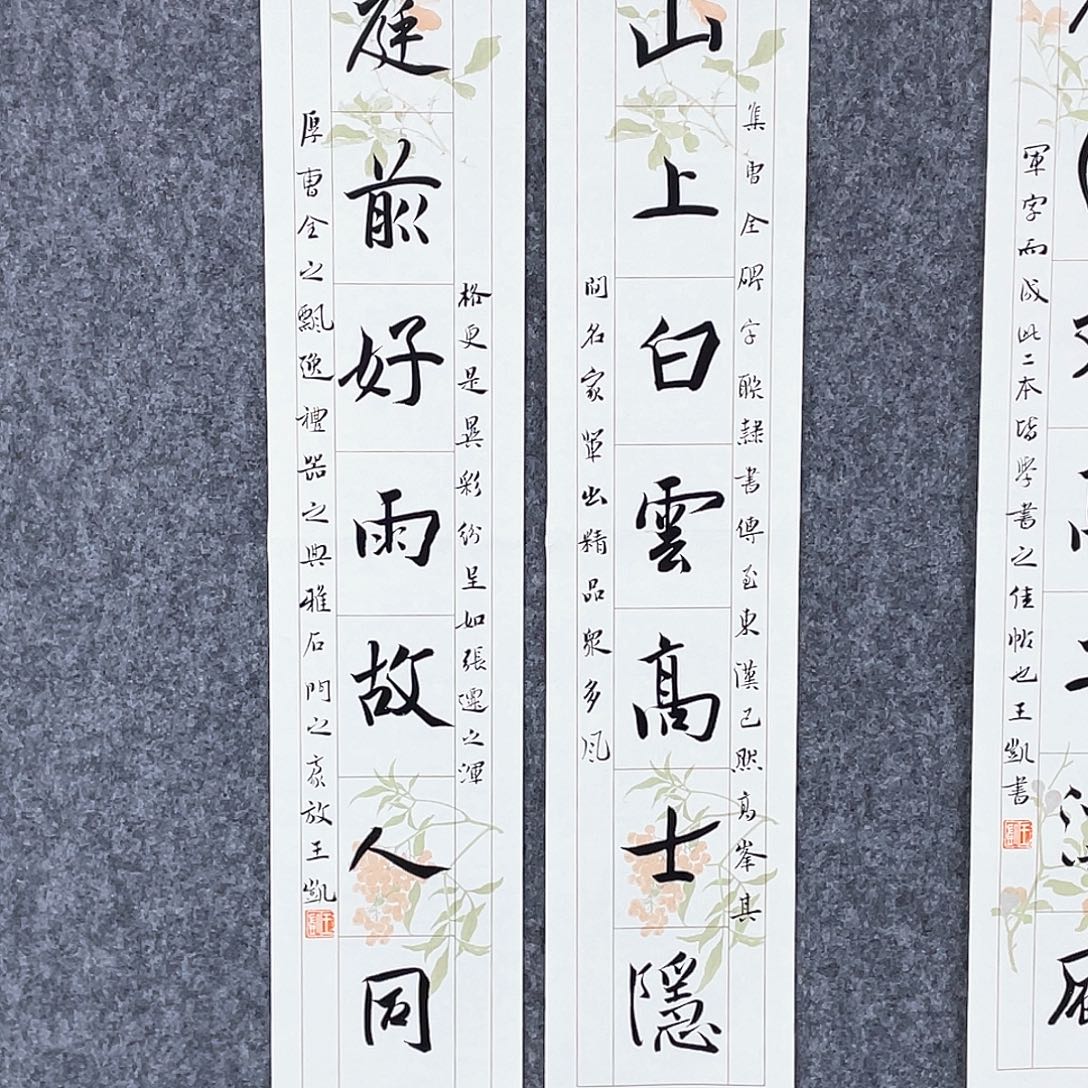 軍字而成此二本皆學書之佳帖也王凱書
集曹全碑字联隸書傳至東漢已然高峯其
山上白雲高士隱
間名家輩出精品衆多風
格更是異彩紛呈如張遷之渾
庭前好雨故人同
厚曹全之飄逸禮器之典雅石門之豪放王凱